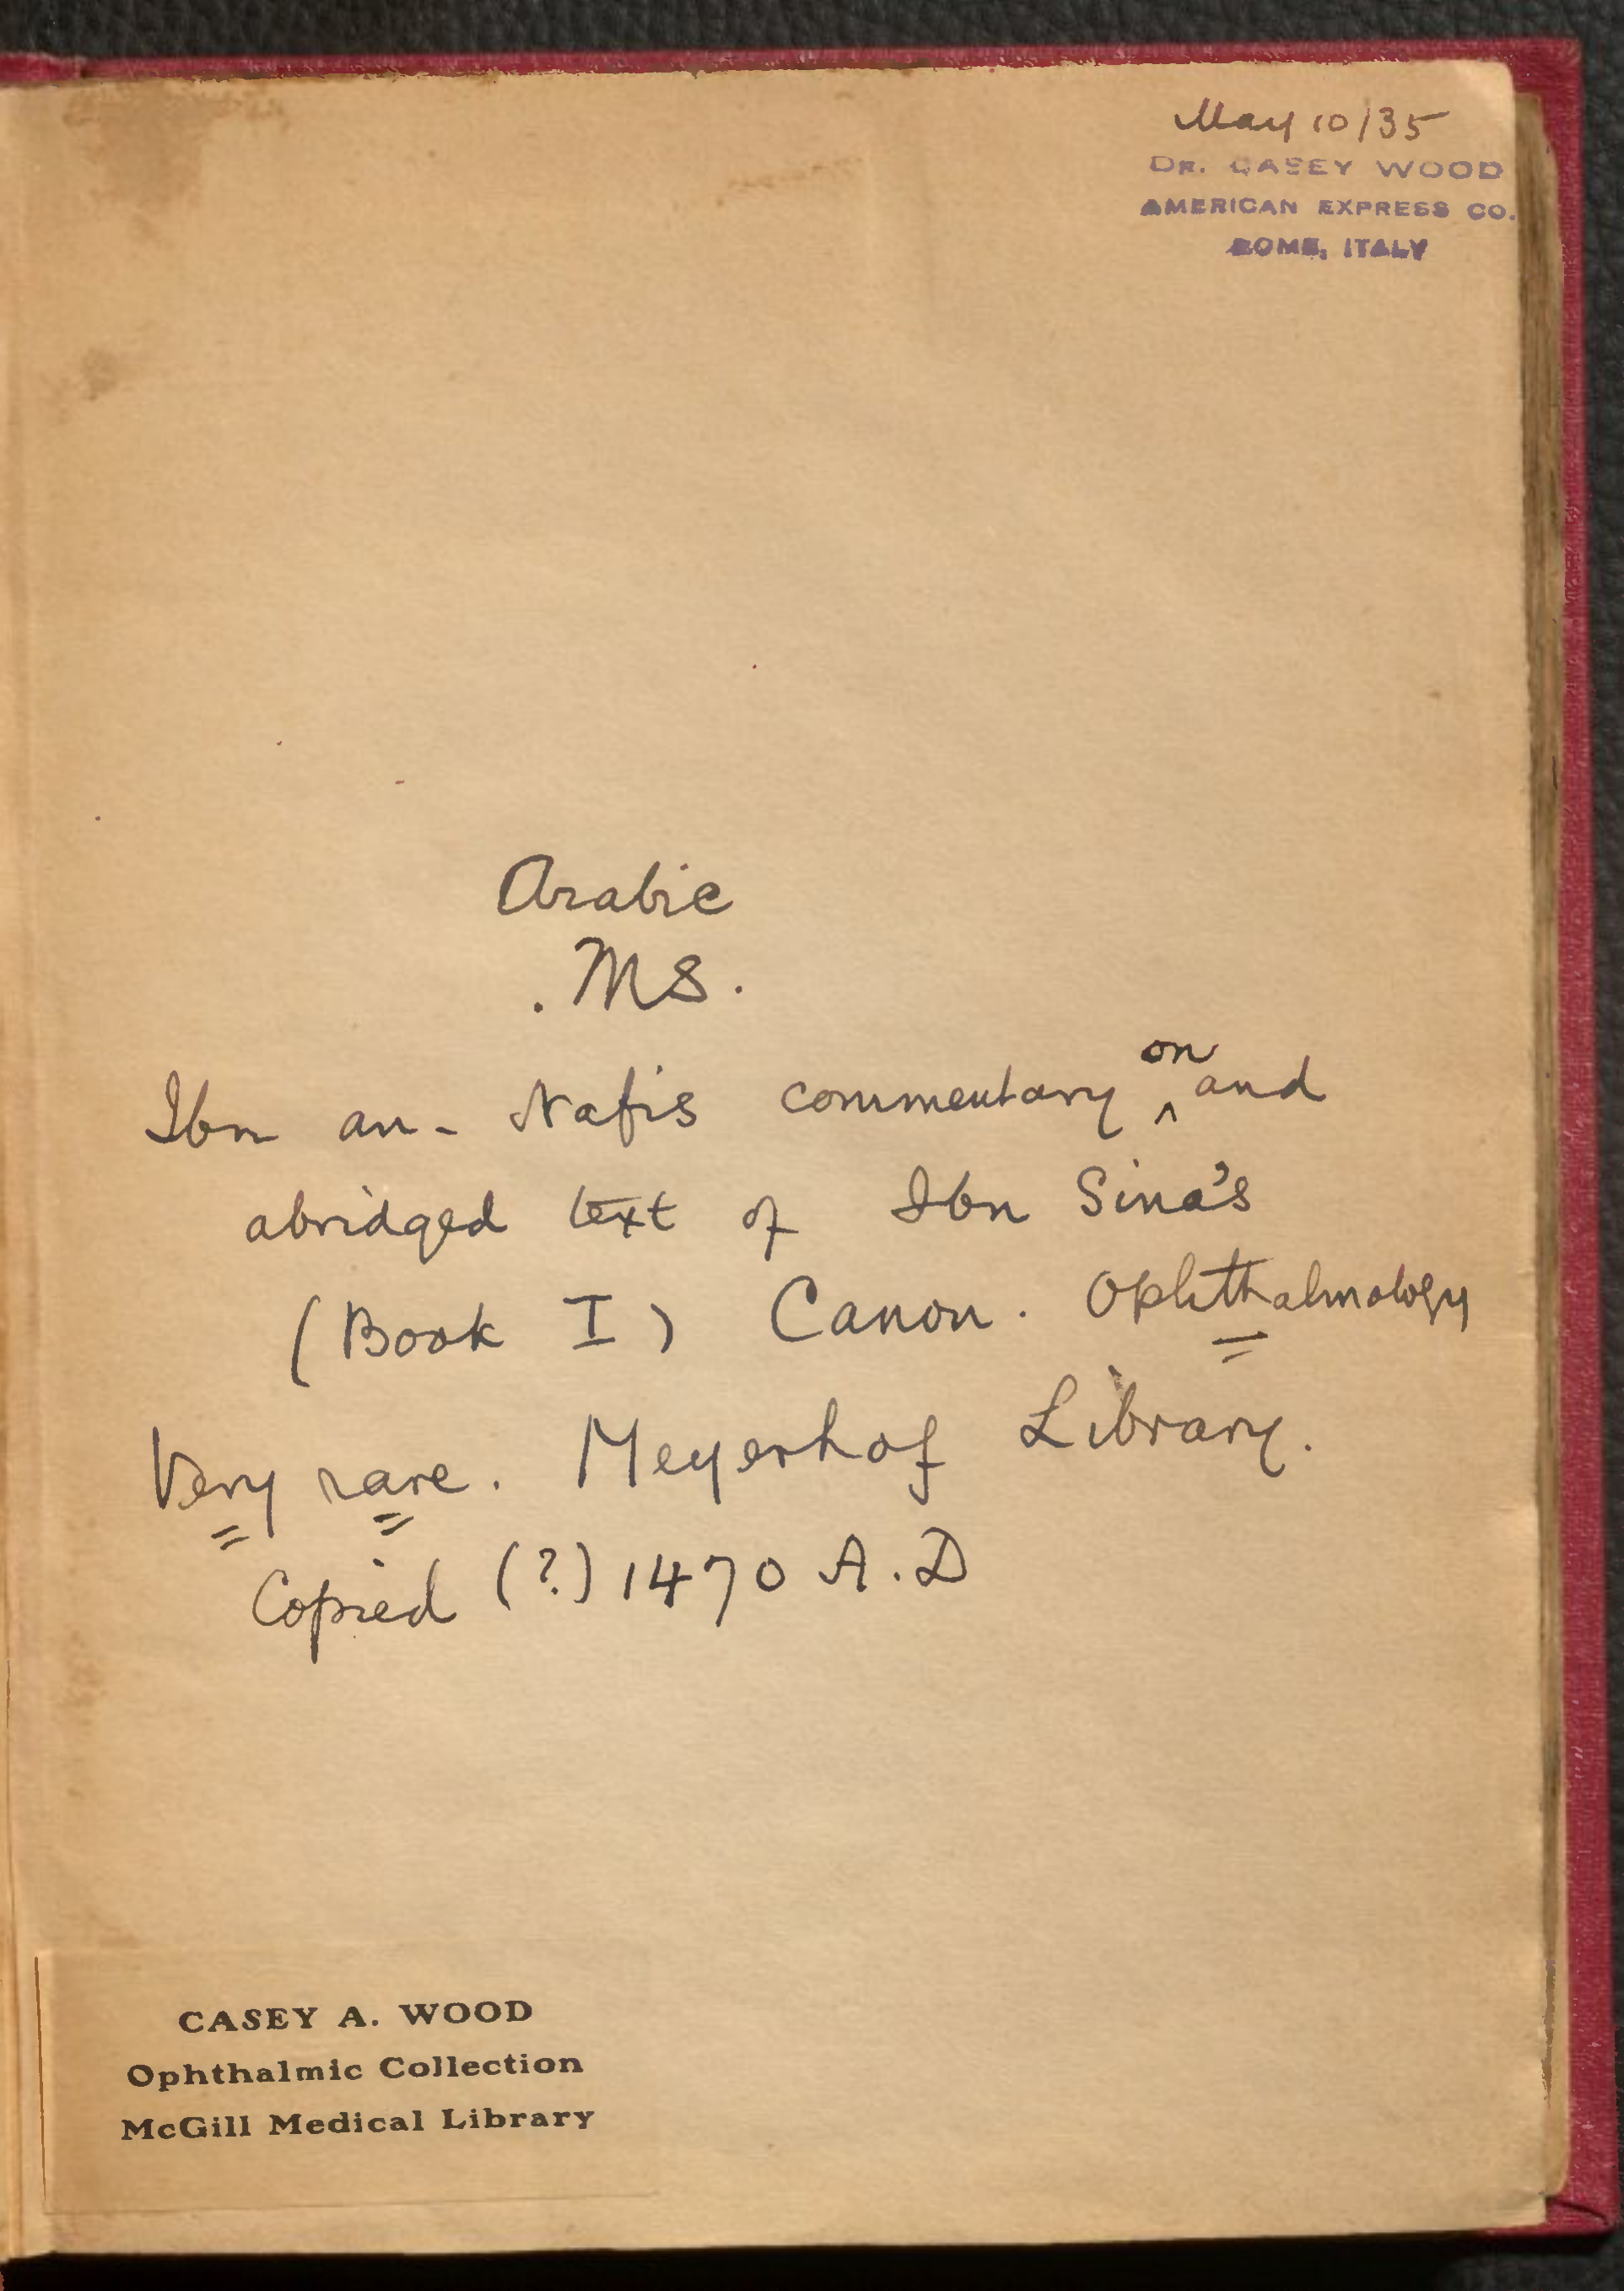 May 10/35
DR. CASEY WOOD
AMERICAN EXPRESS CO.
ROME, ITALY
Arabic
. MS.
Ibn an- Nafis commentary on and
abridged text of Ibn Sina's
(Book I) Canon. Ophthalmology
Very rare. Meyerhof Library.
Copied (?) 1470 A.D
CASEY A. WOOD
Ophthalmic Collection
McGill Medical Library